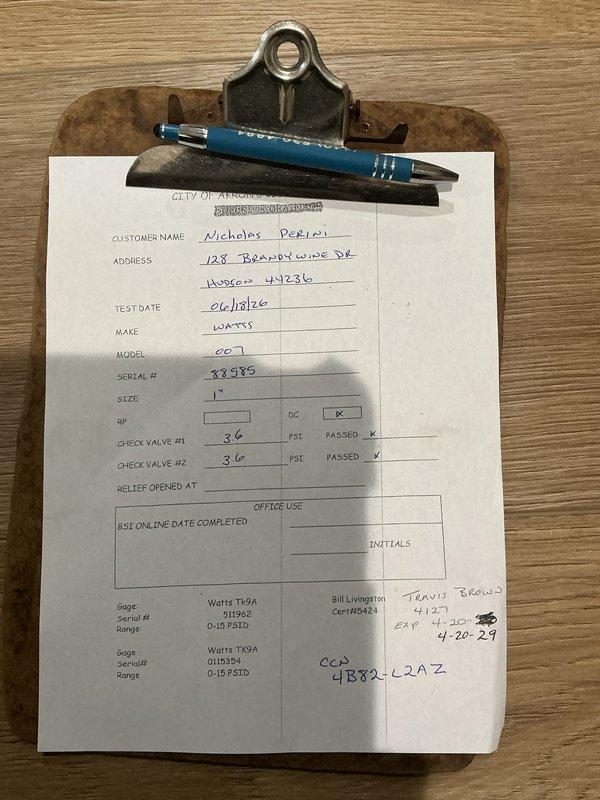 CITY OF AKRON
SUPERIOR DRAINAGE
CUSTOMER NAME Nicholas Perini
ADDRESS 128 Brandywine Dr
Hudson 44236
TEST DATE 06/18/26
MAKE Watts
MODEL 007
SERIAL # 88585
SIZE 1"
RP DC x
CHECK VALVE #1 36 PSI PASSED x
CHECK VALVE #2 36 PSI PASSED x
RELIEF OPENED AT
OFFICE USE
BSI ONLINE DATE COMPLETED
INITIALS
Gage: Watts Tk9A Bill Livingston Travis Brown
Serial # 511962 Cert#5424 4127
Range: 0-15 PSID Exp 4-20-
4-20-29
Gage Watts TK9A
Serial# 0115354 CCN
Range 0-15 PSID 4B82-L2AZ